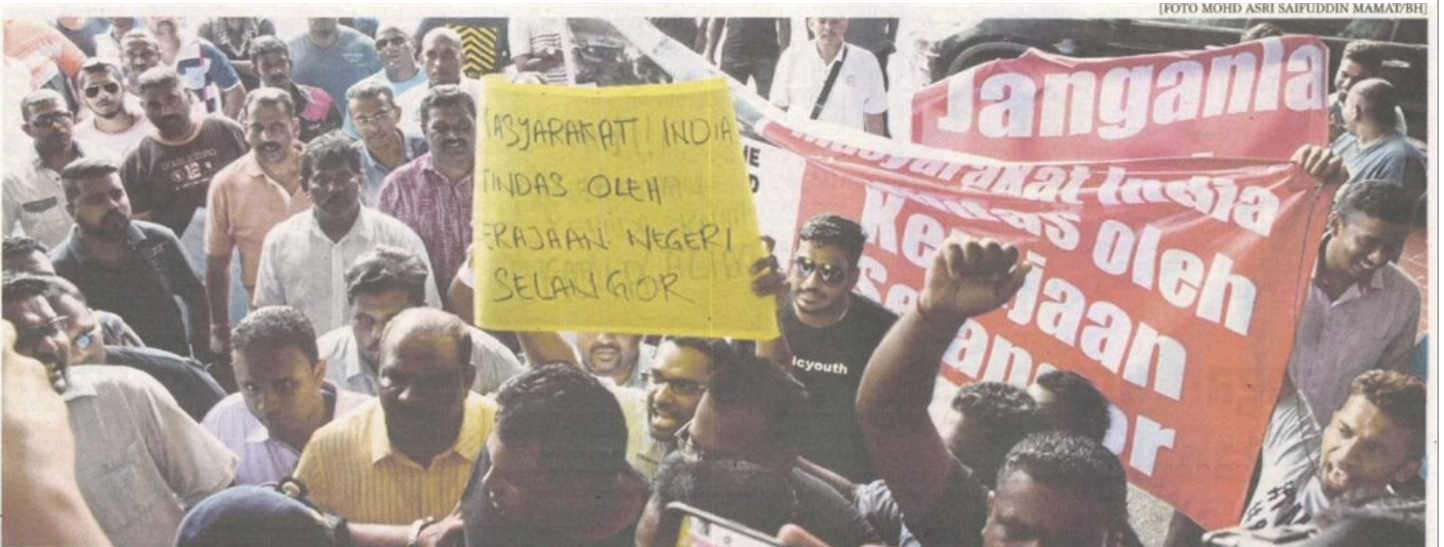 [FOTO MOHD ASRI SAIFUDDIN MAMAT/BH]
ASYARAKAT INDIA
TINDAS OLEH
ERAJAAN NEGERI
SELANGOR
Jangania
Masyarakat India
oleh
icyouth
12